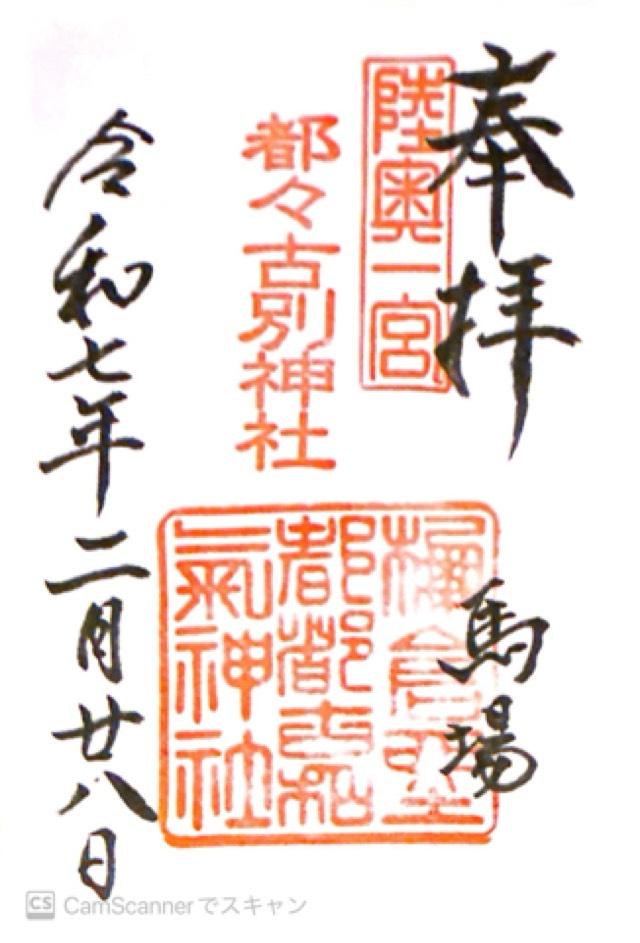 奉拝
陸奥一宮
馬場
都々古別神社
都都古和
氣神社
令和七年二月廿八日
CS CamScannerでスキャン